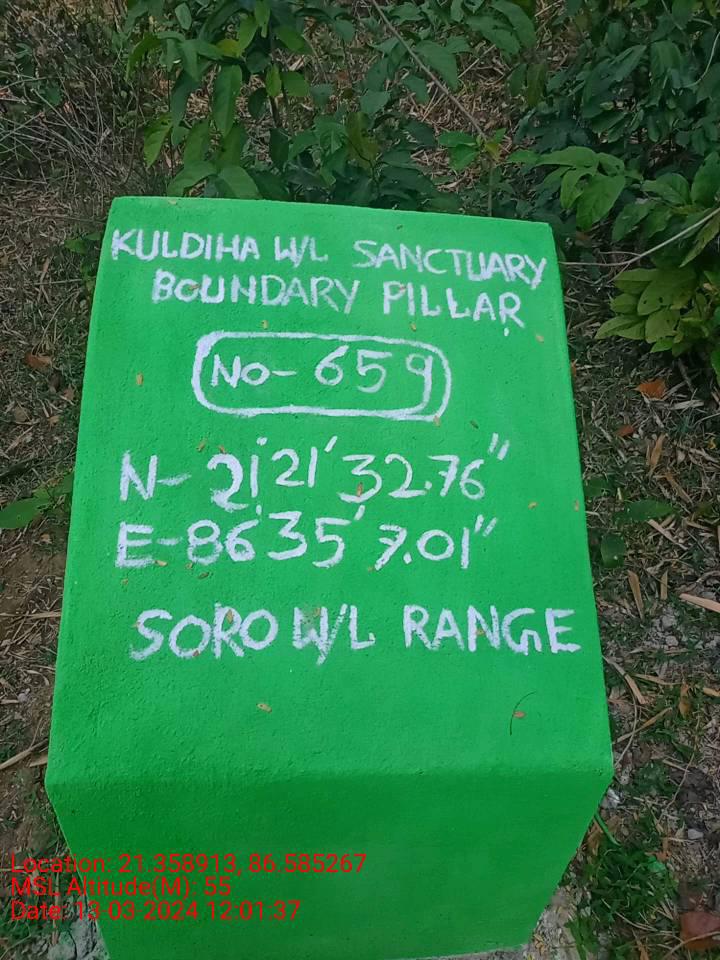 KULDIHA W/L SANCTUARY
BOUNDARY PILLAR
No- 659
N- 21°21' 32.76"
E-86°35' 7.01"
SORO W/L RANGE
Location: 21.358913, 86.585267
MSL Altitude(M): 55
Date: 13-03-2024 12:01:37